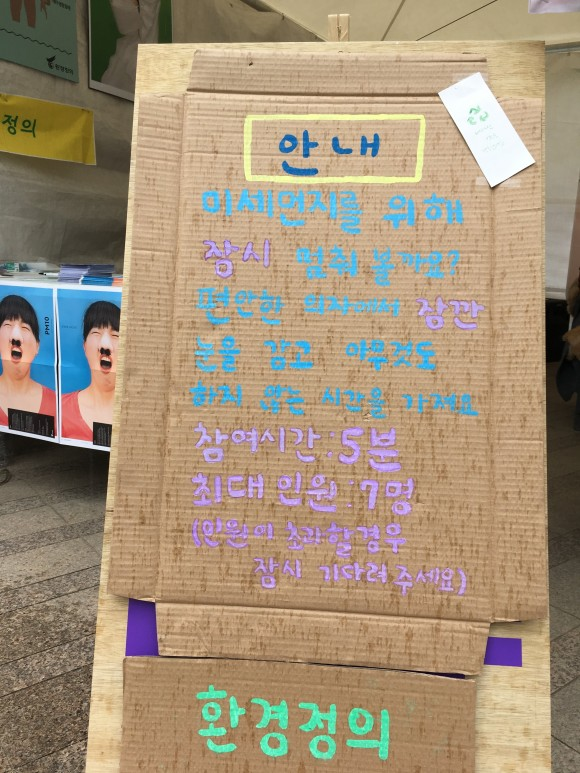 환경정의
정의
PM10
안내
미세먼지를 위해
잠시 멈춰 볼까요?
편안한 의자에서 잠깐
눈을 감고 아무것도
하지 않는 시간을 가져요
참여시간:5분
최대 인원:7명
(인원이 초과할경우
잠시 기다려 주세요)
환경정의